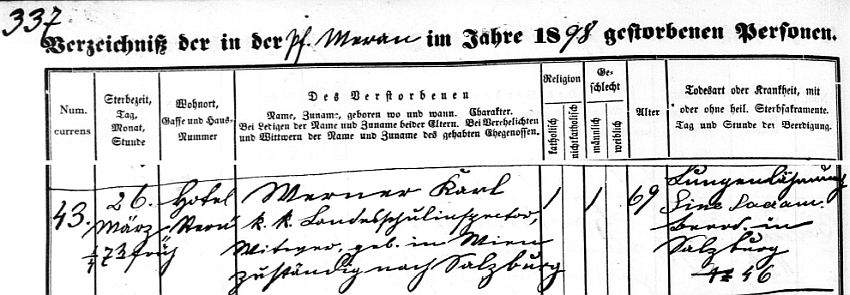 337
Verzeichniß der in der Pf. Meran im Jahre 1898 gestorbenen Personen.
Num. currens
Sterbezeit, Tag, Monat, Stunde
Wohnort, Gasse und Haus-Nummer
Des Verstorbenen
Name, Zuname, geboren wo und wann. Charakter.
Bei Ledigen der Name und Zuname beider Eltern. Bei Verehelichten
und Wittwern der Name und Zuname des gehabten Ehegenossen.
Religion
katholisch
nichtkatholisch
Ge-
schlecht
männlich
weiblich
Alter
Todesart oder Krankheit, mit
oder ohne heil. Sterbsakramente.
Tag und Stunde der Beerdigung.
43.
26.
März
früh
Hotel
Werner Karl
k. k. Landesschulinspector,
Witwer, geb. in Wien
zuständig nach Salzburg
1
1
69
Lungenlähmung
Sine Sacram.
Beerd. in
Salzburg
46